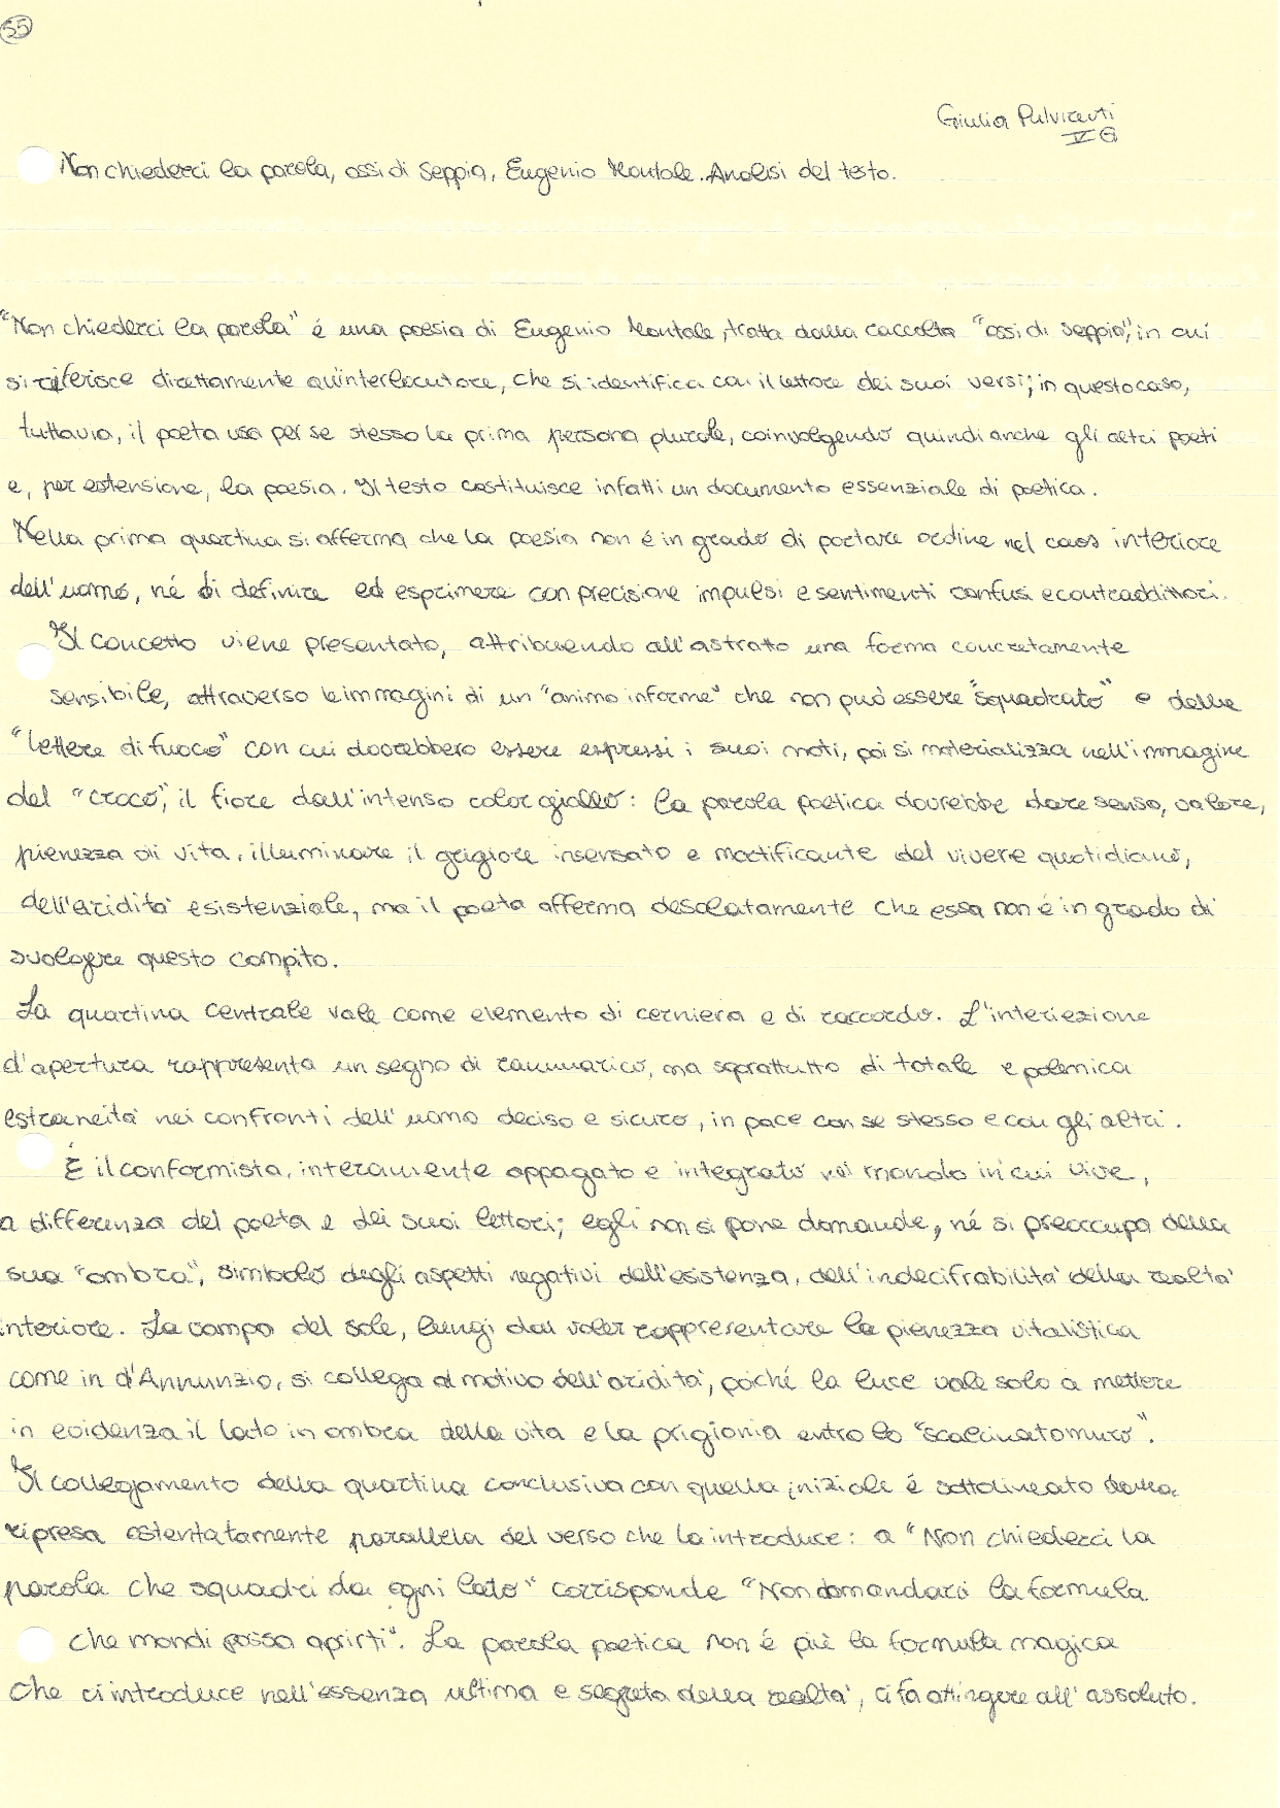 55
Giulia Pulvirenti
VG
Non chiederci la parola, ossi di seppia, Eugenio Montale. Analisi del testo.
"Non chiederci la parola" é una poesia di Eugenio Montale, tratta dalla raccolta "ossi di seppia", in cui
si riferisce direttamente all'interlocutore, che si identifica con il lettore dei suoi versi; in questo caso,
tuttavia, il poeta usa per se stesso la prima persona plurale, coinvolgendo quindi anche gli altri poeti
e, per estensione, la poesia. Il testo costituisce infatti un documento essenziale di poetica.
Nella prima quartina si afferma che la poesia non é in grado di portare ordine nel caos interiore
dell'uomo, né di definire ed esprimere con precisione impulsi e sentimenti confusi e contraddittori.
Il concetto viene presentato, attribuendo all'astratto una forma concretamente
sensibile, attraverso le immagini di un "animo informe" che non può essere "squadrato" e delle
"lettere di fuoco" con cui dovrebbero essere espressi i suoi moti, poi si materializza nell'immagine
del "croco", il fiore dall'intenso color giallo: la parola poetica dovrebbe dare senso, valore,
pienezza di vita, illuminare il grigiore insensato e mortificante del vivere quotidiano,
dell'aridità esistenziale, ma il poeta afferma desolatamente che essa non é in grado di
svolgere questo compito.
La quartina centrale vale come elemento di cerniera e di raccordo. L'interiezione
d'apertura rappresenta un segno di rammarico, ma soprattutto di totale e polemica
estraneità nei confronti dell'uomo deciso e sicuro, in pace con se stesso e con gli altri.
É il conformista, interamente appagato e integrato nel mondo in cui vive,
a differenza del poeta e dei suoi lettori; egli non si pone domande, né si preoccupa della
sua "ombra", simbolo degli aspetti negativi dell'esistenza, dell'indecifrabilità della realtà
interiore. La vampa del sole, lungi dal voler rappresentare la pienezza vitalistica
come in d'Annunzio, si collega al motivo dell'aridità, poiché la luce vale solo a mettere
in evidenza il lato in ombra della vita e la prigionia entro lo "scalcinato muro".
Il collegamento della quartina conclusiva con quella iniziale é sottolineato dalla
ripresa ostentatamente parallela del verso che la introduce: a "Non chiederci la
parola che squadri da ogni lato" corrisponde "Non domandarci la formula
che mondi possa aprirti". La parola poetica non é più la formula magica
che ci introduce nell'essenza ultima e segreta della realtà, ci fa attingere all'assoluto.